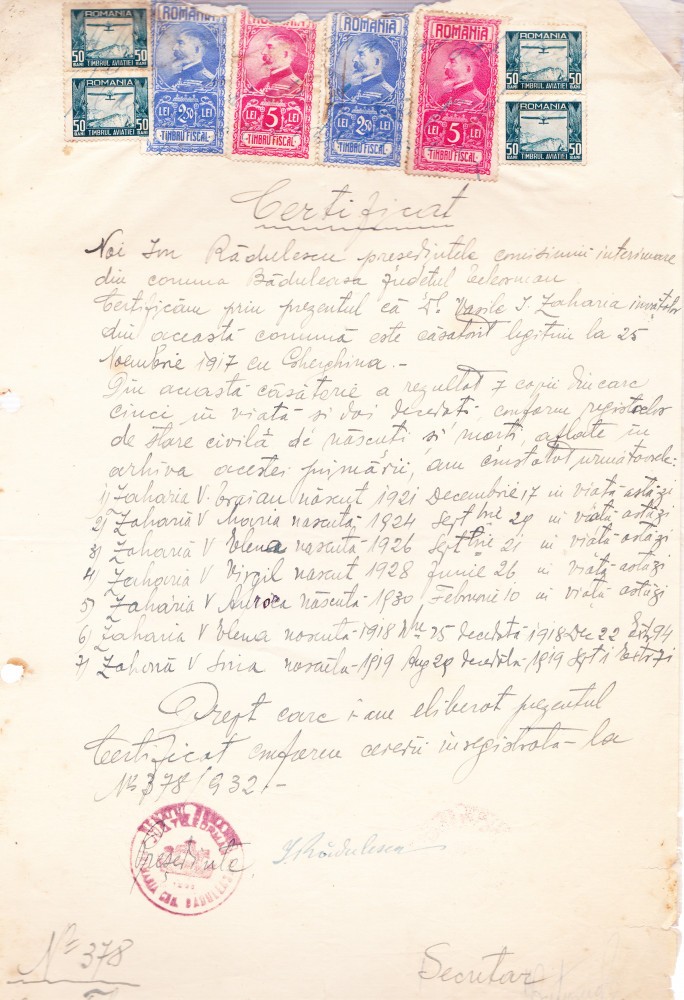 ROMANIA
50 BANI 50 BANI
TIMBRUL AVIATIEI
ROMANIA
50 BANI 50 BANI
TIMBRUL AVIATIEI
ROMANIA
LEI 2.50
TIMBRU FISCAL
ROMANIA
LEI 5 LEI
TIMBRU FISCAL
ROMANIA
LEI 2.50
TIMBRU FISCAL
ROMANIA
LEI 5 LEI
TIMBRU FISCAL
ROMANIA
50 BANI 50 BANI
TIMBRUL AVIATIEI
ROMANIA
50 BANI 50 BANI
TIMBRUL AVIATIEI
Certificat
Noi Ion Rădulescu președintele comisiunii interimare
din comuna Băduleasa județul Teleorman
Certificăm prin prezentul că Dl. Vasile I. Zaharia învățător
din această comună este căsătorit legitim la 25
Noembrie 1917 cu Gherghina.-
Din această căsătorie a rezultat 7 copii din care
cinci in viată si doi decedati, conform registrelor
de stare civilă de născuti si morti, aflate in
arhiva acestei primării, am constatat următoarele:
1) Zaharia V. Traian născut 1921 Decembrie 17 in viată astăzi
2) Zaharia V Maria nascută 1924 Septbrie 29 in viată astăzi
3) Zaharia V Elena nascută 1926 Septbrie 21 in viată astăzi
4) Zaharia V Virgil nascut 1928 Iunie 26 in viată astăzi
5) Zaharia V Aurora născută 1930 Februarie 10 in viată astăzi
6) Zaharia V Elena nascuta 1918 15 decedată 1918 Dec 22 94
7) Zaharia V nascuta 1919 Aug 29 decedata 1919 Sept 1 71
Drept care i-am eliberat prezentul
Certificat conform cererii inregistrata la
No 378/932.-
Președinte,
I Rădulescu
No 378
Secretar